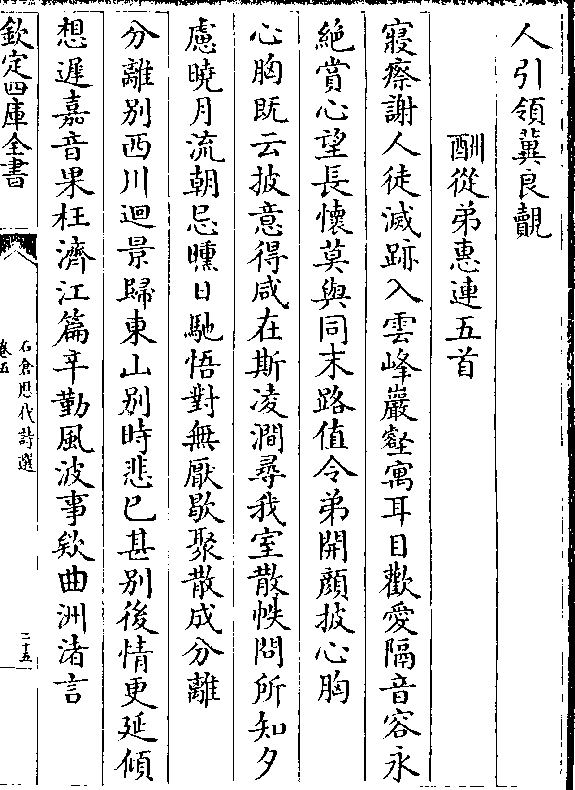 人引領冀良覿
酬從弟惠連五首
寢瘵謝人徒滅跡入雲峰巖壑寓耳目歡愛隔音容永
絶賞心望長懷莫與同末路值令弟開顔披心胸
心胸既云披意得咸在斯凌澗尋我室散帙問所知夕
慮曉月流朝忌曛日馳悟對無厭歇聚散成分離
分離別西川迴景歸東山別時悲已甚別後情更延傾
想遲嘉音果枉濟江篇辛勤風波事欵曲洲渚言
欽定四庫全書
石倉歷代詩選
卷五
二十五